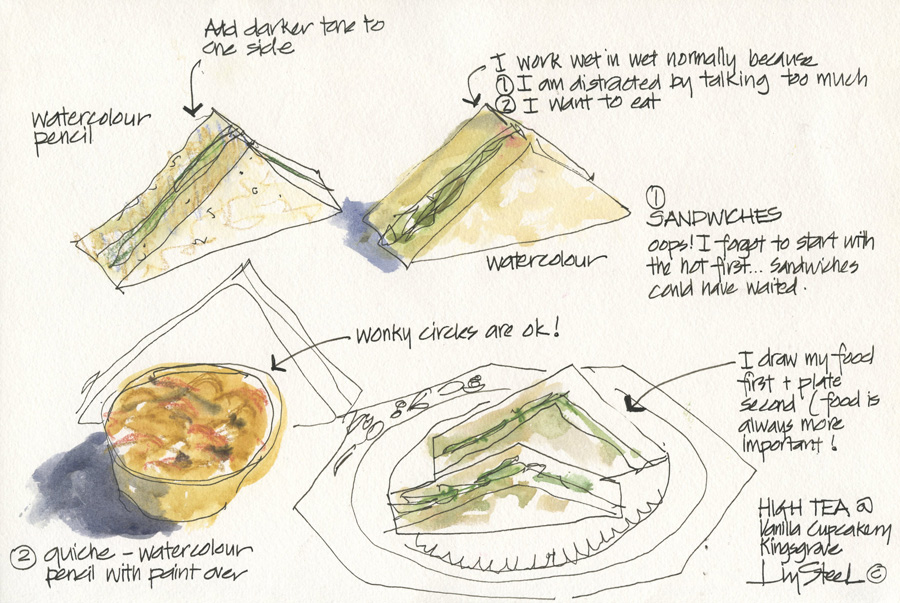 Add darker tone to
one side
I work wet in wet normally because
① I am distracted by talking too much
② I want to eat
watercolour
pencil
watercolour
①
SANDWICHES
oops! I forgot to start with
the hot first... sandwiches
could have waited.
wonky circles are ok!
I draw my food
first + plate
second (food is
always more
important!
② quiche - watercolour
pencil with paint over
HIGH TEA @
Vanilla Cupcakery
Kingsgrove
Liz Steel ©